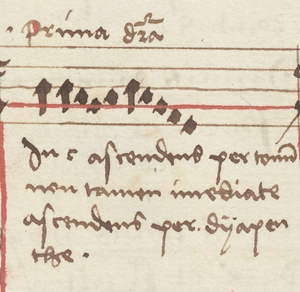 · prima dr̄a
In c ascendens per tonū
non tamen imediate
ascendens per . dyapen
the .